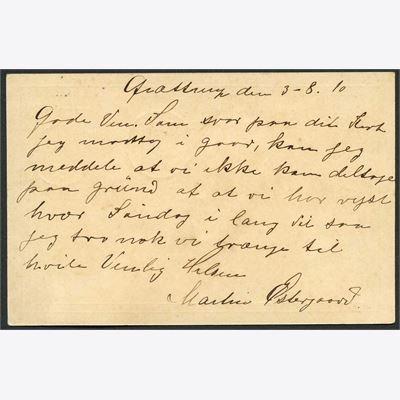 Grættrup den 3-8. 10
Gode Ven. Som svar paa dit Kort
jeg modtog i gaar, kan jeg
meddele at vi ikke kan deltage
paa grund af at vi har
hvær Søndag i lang Tid saa
jeg tro nok vi trænge til
hvile Venlig Hilsen
Martin Østergaard.